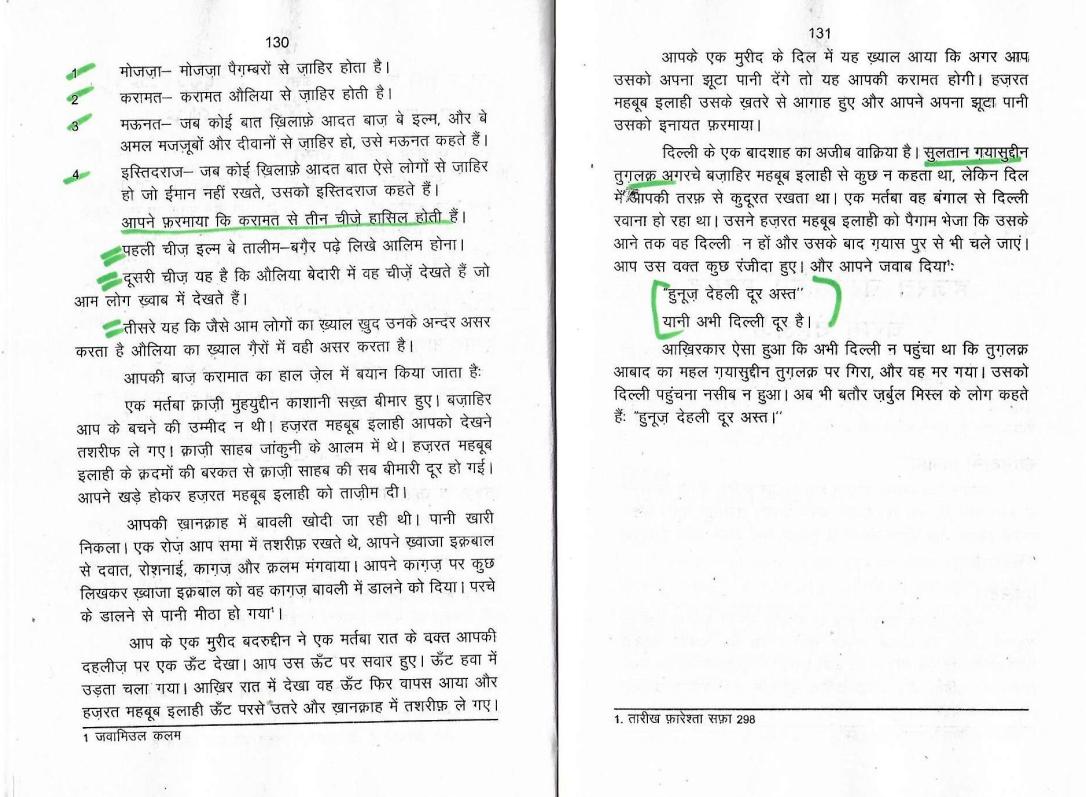 130
1 मोजज़ा– मोजज़ा पैग़म्बरों से ज़ाहिर होता है।
2 करामत– करामत औलिया से ज़ाहिर होती है।
3 मऊनत– जब कोई बात ख़िलाफ़े आदत बाज़ बे इल्म, और बे
अमल मजज़ूबों और दीवानों से ज़ाहिर हो, उसे मऊनत कहते हैं।
4 इस्तिदराज– जब कोई ख़िलाफ़े आदत बात ऐसे लोगों से ज़ाहिर
हो जो ईमान नहीं रखते, उसको इस्तिदराज कहते हैं।
आपने फ़रमाया कि करामत से तीन चीजे हासिल होती हैं।
पहली चीज़ इल्म बे तालीम–बग़ैर पढ़े लिखे आलिम होना।
दूसरी चीज़ यह है कि औलिया बेदारी में वह चीज़ें देखते हैं जो
आम लोग ख्वाब में देखते हैं।
तीसरे यह कि जैसे आम लोगों का ख़्याल खुद उनके अन्दर असर
करता है औलिया का ख़्याल ग़ैरों में वही असर करता है।
आपकी बाज़ करामात का हाल ज़ेल में बयान किया जाता हैः
एक मर्तबा क़ाज़ी मुहयुद्दीन काशानी सख़्त बीमार हुए। बज़ाहिर
आप के बचने की उम्मीद न थी। हज़रत महबूब इलाही आपको देखने
तशरीफ ले गए। क़ाज़ी साहब जांकुनी के आलम में थे। हज़रत महबूब
इलाही के क़दमों की बरकत से क़ाज़ी साहब की सब बीमारी दूर हो गई।
आपने खड़े होकर हज़रत महबूब इलाही को ताज़ीम दी।
आपकी ख़ानक़ाह में बावली खोदी जा रही थी। पानी खारी
निकला। एक रोज़ आप समा में तशरीफ़ रखते थे, आपने ख़्वाजा इक़बाल
से दवात, रोशनाई, काग़ज़ और क़लम मंगवाया। आपने काग़ज़ पर कुछ
लिखकर ख़्वाजा इक़बाल को वह काग़ज़ बावली में डालने को दिया। परचे
के डालने से पानी मीठा हो गया¹।
आप के एक मुरीद बदरुद्दीन ने एक मर्तबा रात के वक्त आपकी
दहलीज़ पर एक ऊँट देखा। आप उस ऊँट पर सवार हुए। ऊँट हवा में
उड़ता चला गया। आख़िर रात में देखा वह ऊँट फिर वापस आया और
हज़रत महबूब इलाही ऊँट परसे उतरे और ख़ानक़ाह में तशरीफ़ ले गए।
1 जवामिउल कलम
131
आपके एक मुरीद के दिल में यह ख़्याल आया कि अगर आप
उसको अपना झूटा पानी देंगे तो यह आपकी करामत होगी। हज़रत
महबूब इलाही उसके ख़तरे से आगाह हुए और आपने अपना झूटा पानी
उसको इनायत फ़रमाया।
दिल्ली के एक बादशाह का अजीब वाक़िया है। सुलतान ग़यासुद्दीन
तुग़लक़ अगरचे बज़ाहिर महबूब इलाही से कुछ न कहता था, लेकिन दिल
में आपकी तरफ़ से कुदूरत रखता था। एक मर्तबा वह बंगाल से दिल्ली
रवाना हो रहा था। उसने हज़रत महबूब इलाही को पैगाम भेजा कि उसके
आने तक वह दिल्ली न हों और उसके बाद ग़यास पुर से भी चले जाएं।
आप उस वक्त कुछ रंजीदा हुए। और आपने जवाब दिया¹ः
"हुनूज़ देहली दूर अस्त"
यानी अभी दिल्ली दूर है।
आख़िरकार ऐसा हुआ कि अभी दिल्ली न पहुंचा था कि तुग़लक़
आबाद का महल ग़यासुद्दीन तुग़लक़ पर गिरा, और वह मर गया। उसको
दिल्ली पहुंचना नसीब न हुआ। अब भी बतौर ज़र्बुल मिस्ल के लोग कहते
हैंः "हुनूज़ देहली दूर अस्त।"
1. तारीख फ़ारेश्ता सफ़ा 298